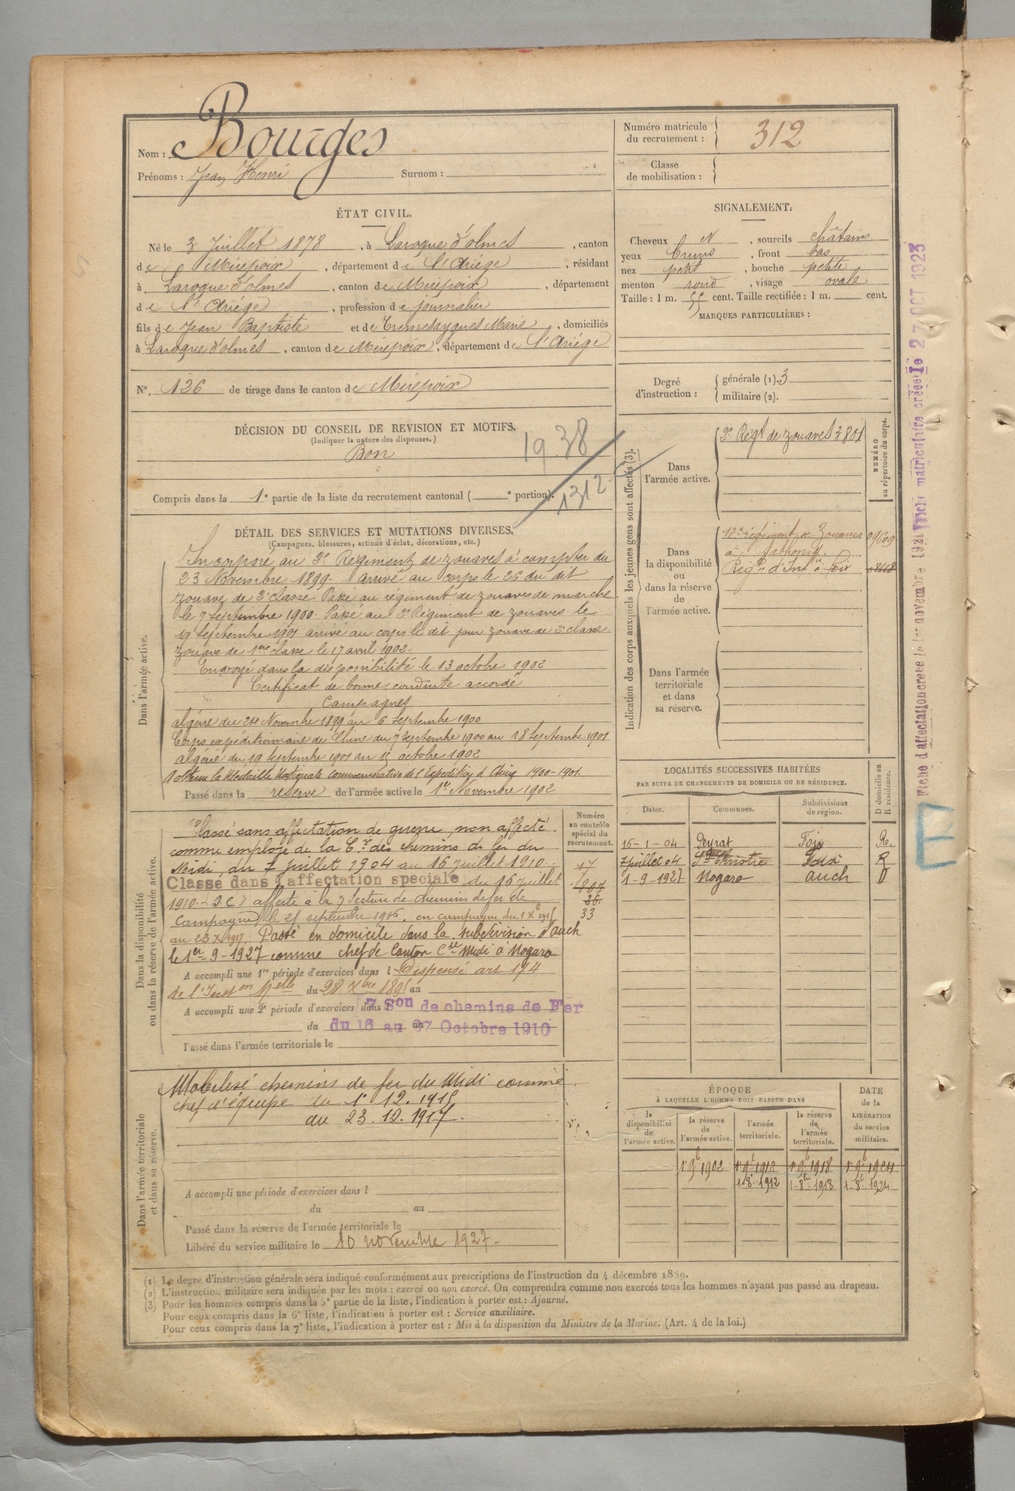 Nom : Bourges
Prénoms : Jean Henri Surnom :
Numéro matricule du recrutement : 312
Classe de mobilisation :
ÉTAT CIVIL.
Né le 3 Juillet 1878, à Laroque d'olmes, canton
de Mirepoix, département de l'Ariége, résidant
à Laroque d'olmes, canton de Mirepoix, département
de l'Ariége, profession de journalier
fils de Jean Baptiste et de Marie, domiciliés
à Laroque d'olmes, canton de Mirepoix, département de l'Ariége
N° 126 de tirage dans le canton de Mirepoix
SIGNALEMENT.
Cheveux N, sourcils châtains
yeux bruns, front bas
nez petit, bouche petite
menton rond, visage ovale
Taille : 1 m. cent. Taille rectifiée : 1 m. cent.
MARQUES PARTICULIÈRES :
Degré d'instruction : générale (1). 3
militaire (2).
DÉCISION DU CONSEIL DE REVISION ET MOTIFS.
(Indiquer la nature des dispenses.)
Bon
1938
1312
Compris dans la 1e partie de la liste du recrutement cantonal ( e portion).
DÉTAIL DES SERVICES ET MUTATIONS DIVERSES.
(Campagnes, blessures, actions d'éclat, décorations, etc.)
Dans l'armée active.
Incorporé au 3e Régiment de zouaves à compter du
23 Novembre 1899. arrivé au corps le 25 du dit
zouave de 2e classe. Passé au régiment de zouaves de marche
le 7 septembre 1900. Passé au 3e Régiment de zouaves le
19 Septembre 1901 arrivé au corps le dit jour zouave de 2e classe
zouave de 1ère classe le 17 avril 1902.
Envoyé dans la disponibilité le 13 octobre 1902
Certificat de bonne conduite accordé
Campagnes
algérie du 24 Novembre 1899 au 6 Septembre 1900
Corps expéditionnaire de Chine du 7 septembre 1900 au 18 Septembre 1901
algérie du 19 septembre 1901 au octobre 1902
a obtenu la Médaille commémorative de l'Expédition de Chine 1900-1901
Passé dans la réserve de l'armée active le 1er Novembre 1902
Indication des corps auxquels les jeunes gens sont affectés (3).
NUMÉRO au répertoire du corps.
Dans l'armée active.
3e Régt de zouaves 3801
Dans la disponibilité ou dans la réserve de l'armée active.
régiment de Zouaves
à
Régt d'Inf à Foix
Dans l'armée territoriale et dans sa réserve.
Dans la disponibilité ou dans la réserve de l'armée active.
Numéro au contrôle spécial du recrutement.
Classé sans affectation de guerre non affecté
comme employé de la Cie des chemins de fer du
Midi, du 7 Juillet 1904 au 16 juillet 1910
Classé dans l'affectation spéciale du 16 juillet
1910 affecté à la 7 section de chemins de fer de
Campagne le 21 septembre en campagne du
au Passé en domicile dans la subdivision d'auch
le 1er-9-1927 comme chef de Canton Cie Midi à Nogaro
33
A accompli une 1re période d'exercices dans l Dispensé art 194
de l'Inston Melle du au
A accompli une 2e période d'exercices dans 7 Son de chemins de Fer
du du 16 au 27 Octobre 1910
Passé dans l'armée territoriale le
LOCALITÉS SUCCESSIVES HABITÉES
PAR SUITE DE CHANGEMENTS DE DOMICILE OU DE RÉSIDENCE.
Dates. Communes. Subdivisions de région. D domicile ou R résidence.
16-1-04 Peyrat Foix R
7 juillet 04 R
1-9-1927 Nogaro auch D
Dans l'armée territoriale et dans sa réserve.
Mobilisé chemins de fer du Midi comme
chef d'équipe du 1er 12.1915
au 23.10.1917.
A accompli une période d'exercices dans l
du au
Passé dans la réserve de l'armée territoriale le
Libéré du service militaire le 10 novembre 1927.
ÉPOQUE
À LAQUELLE L'HOMME DOIT PASSER DANS
la disponibilité de l'armée active.
la réserve de l'armée active.
l'armée territoriale.
la réserve de l'armée territoriale.
DATE de la LIBÉRATION du service militaire.
1er 9b 1902 1er 9b 1912 1er 9b 1918 1er 9b 1924
(1) Le degré d'instruction générale sera indiqué conformément aux prescriptions de l'instruction du 4 décembre 1889.
(2) L'instruction militaire sera indiquée par les mots : exercé ou non exercé. On comprendra comme non exercés tous les hommes n'ayant pas passé au drapeau.
(3) Pour les hommes compris dans la 5e partie de la liste, l'indication à porter est : Ajourné.
Pour ceux compris dans la 6e liste, l'indication à porter est : Service auxiliaire.
Pour ceux compris dans la 7e liste, l'indication à porter est : Mis à la disposition du Ministre de la Marine. (Art. 4 de la loi.)
Fiche d'affectation créée le 1er novembre matriculaire créée le 27 OCT 1923
E